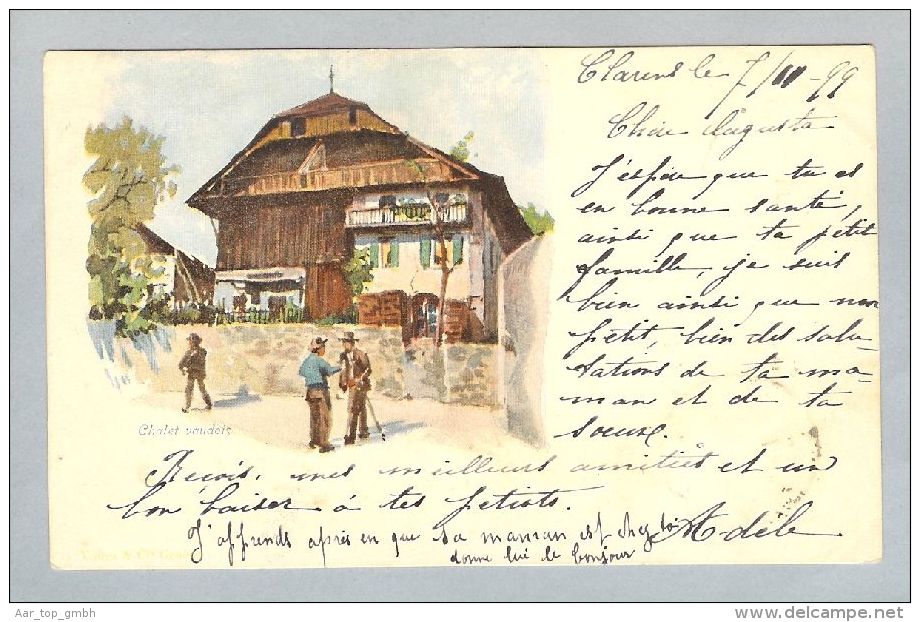 Clarens le 7/III-99
Chère Augusta
J'espère que tu es
en bonne santé,
ainsi que ta petit
famille, je suis
bien ainsi que mon
petit, bien des salu-
tations de ta ma-
man et de ta
soeur.
Chalet vaudois
Reçois, mes meilleurs amitiés et un
bon baiser à tes petiots.
Adèle
J'apprends après en que sa maman est chez toi
donne lui le bonjour
Aar_top_gmbh
www.delcampe.net